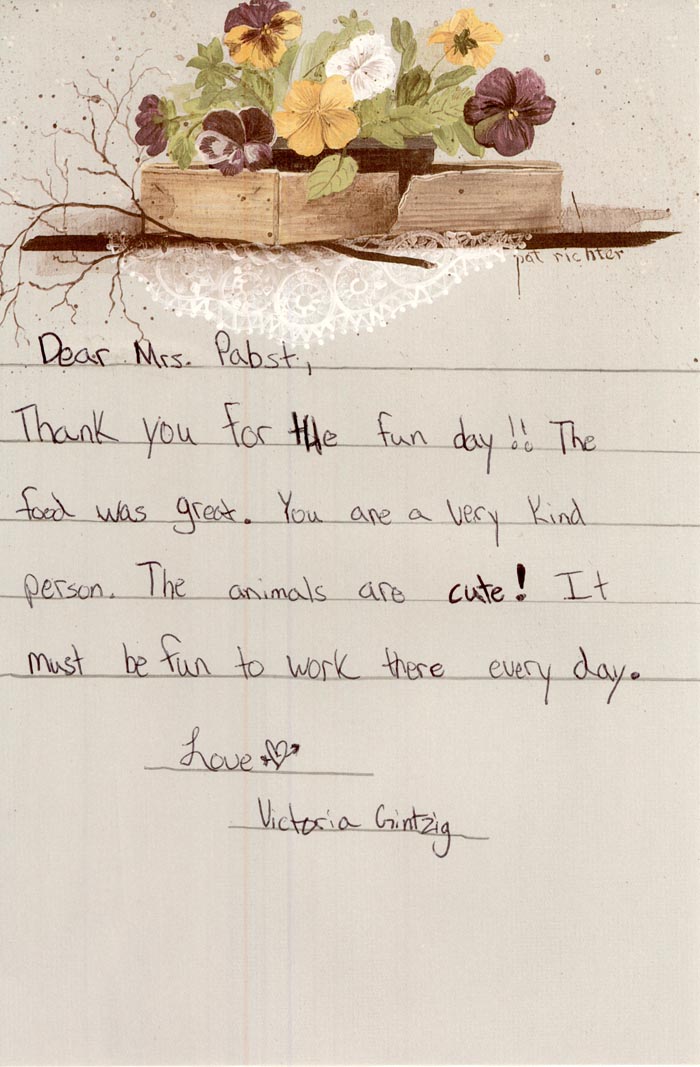 pat richter
Dear Mrs. Pabst,
Thank you for the fun day!! The
food was great. You are a very kind
person. The animals are cute! It
must be fun to work there every day.
Love
Victoria Gintzig